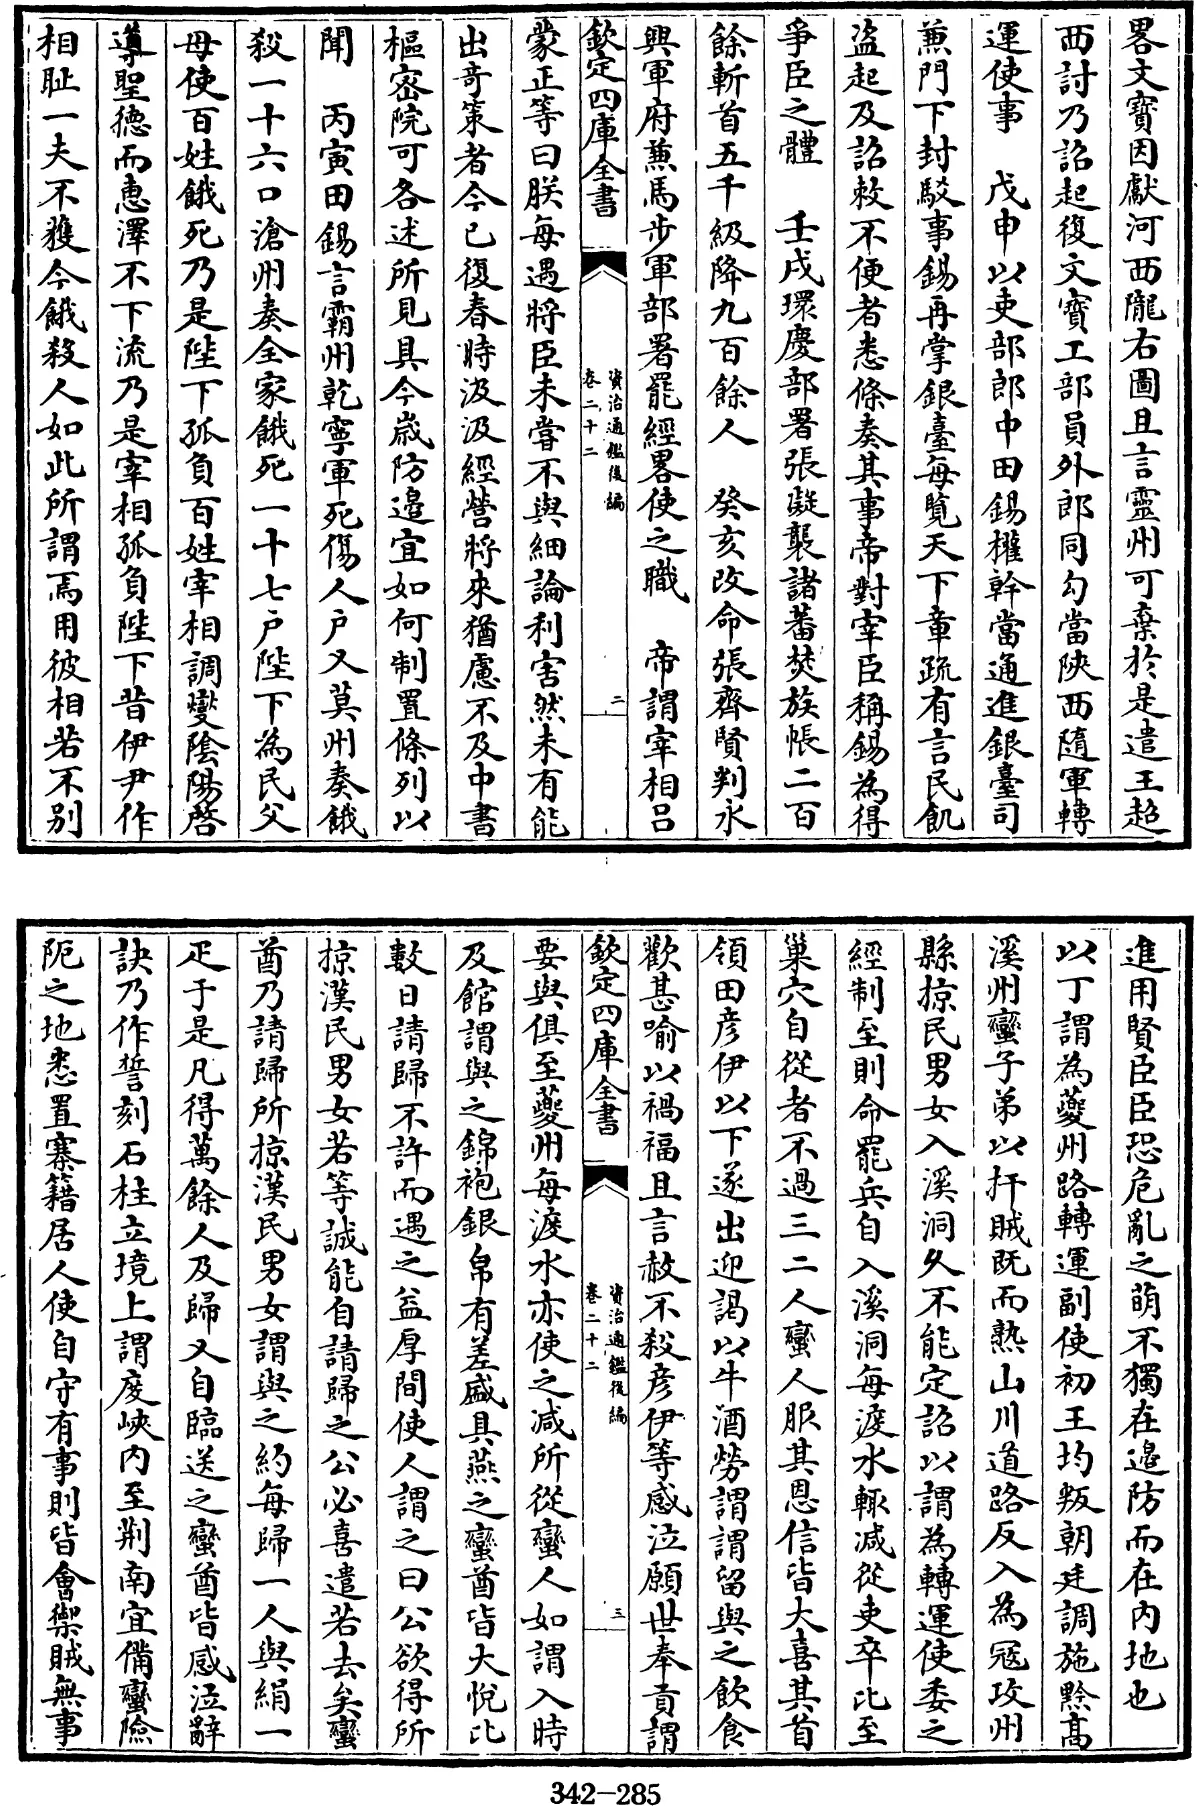 畧文寳因獻河西隴右圖且言靈州可棄於是遣王超
西討乃詔起復文寳工部員外郎同勾當陜西隨軍轉
運使事　戊申以吏部郎中田錫權幹當通進銀臺司
兼門下封駮事錫再掌銀臺每覧天下章疏有言民飢
盜起及詔敕不便者悉條奏其事帝對宰臣稱錫為得
爭臣之體　壬戌環慶部署張凝襲諸蕃焚族帳二百
餘斬首五千級降九百餘人　癸亥改命張齊賢判永
興軍府兼馬步軍部署罷經畧使之職　帝謂宰相呂
欽定四庫全書　資治通鑑後編卷二十二　二
蒙正等曰朕每遇將臣未嘗不與細論利害然未有能
出奇策者今已復春時汲汲經營將來猶慮不及中書
樞密院可各述所見具今嵗防邉宜如何制置條列以
聞　丙寅田錫言霸州乾寧軍死傷人户又莫州奏餓
殺一十六口滄州奏全家餓死一十七户陛下為民父
母使百姓餓死乃是陛下孤負百姓宰相調燮陰陽啓
導聖德而惠澤不下流乃是宰相孤負陛下昔伊尹作
相耻一夫不獲今餓殺人如此所謂焉用彼相若不别
進用賢臣臣恐危亂之萌不獨在邉防而在内地也
以丁謂為夔州路轉運副使初王均叛朝廷調施黔高
溪州蠻子弟以扞賊既而熟山川道路反入為冦攻州
縣掠民男女入溪洞久不能定詔以謂為轉運使委之
經制至則命罷兵自入溪洞每渡水輒减從吏卒比至
巢穴自從者不過三二人蠻人服其恩信皆大喜其首
領田彦伊以下遂出迎謁以牛酒勞謂謂留與之飲食
歡甚喻以禍福且言赦不殺彦伊等感泣願世奉貢謂
欽定四庫全書　資治通鑑後編卷二十二　三
要與俱至夔州每渡水亦使之减所從蠻人如謂入時
及館謂與之錦袍銀帛有差盛具燕之蠻酋皆大悅比
數日請歸不許而遇之益厚間使人謂之曰公欲得所
掠漢民男女若等誠能自請歸之公必喜遣若去矣蠻
酋乃請歸所掠漢民男女謂與之約每歸一人與絹一
疋于是凡得萬餘人及歸又自臨送之蠻酋皆感泣辭
訣乃作誓刻石柱立境上謂度峽内至荆南宜備蠻險
阨之地悉置寨籍居人使自守有事則皆會禦賊無事
342-285